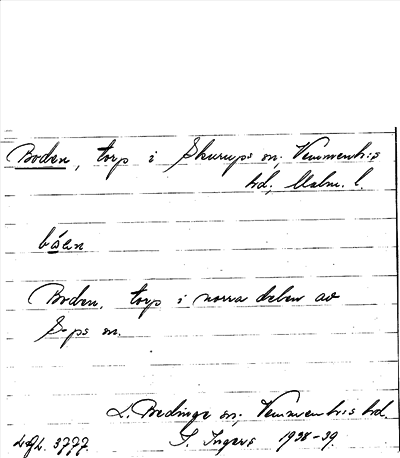 Boden, torp i Skurups sn, Vemmenh:s
hd, Malm. l.
båen
Boden, torp i norra delen av
S-ps sn.
L. Bedinge sn, Vemmenh:s hd.
3777. S. Ingers 1938-39.